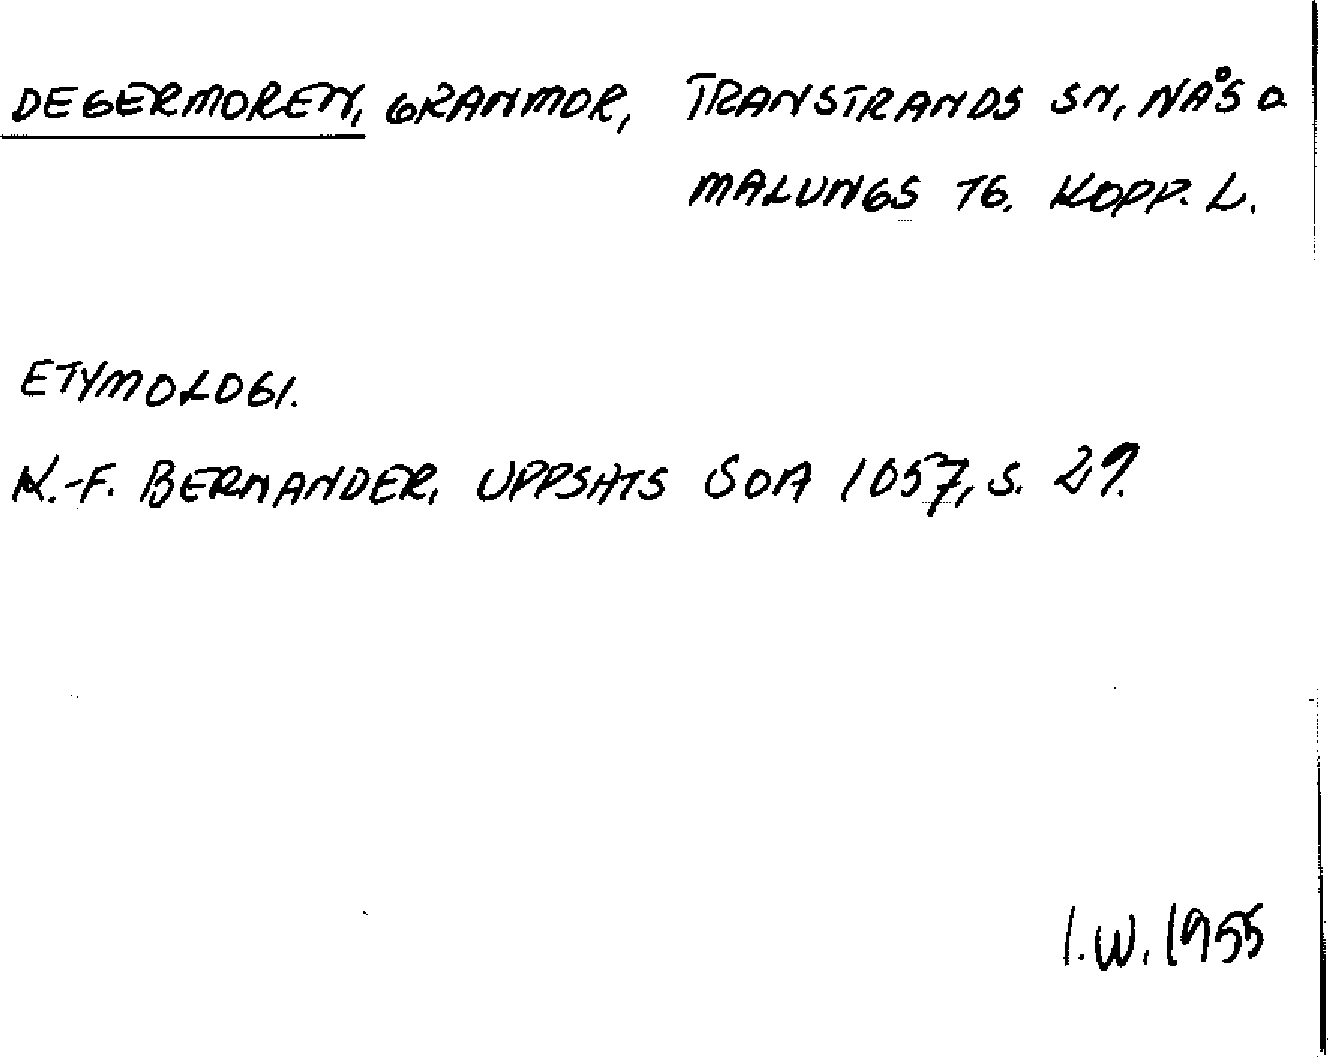 DEGERMOREN, GRANMOR, TRANSTRANDS SN, NÅS O
MALUNGS TG. KOPP. L.
ETYMOLOGI.
K.-F. BERNANDER, UPPSATS SOA 1057, S. 29.
I.W. 1955